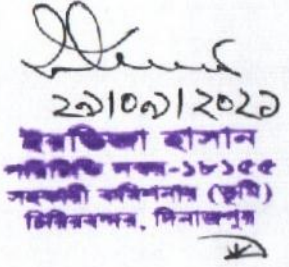 ২৯|০৯|২০২১
ইরতিজা হাসান
পরিচিতি নম্বর-১৮১৫৫
সহকারী কমিশনার (ভূমি)
চিরিরবন্দর, দিনাজপুর